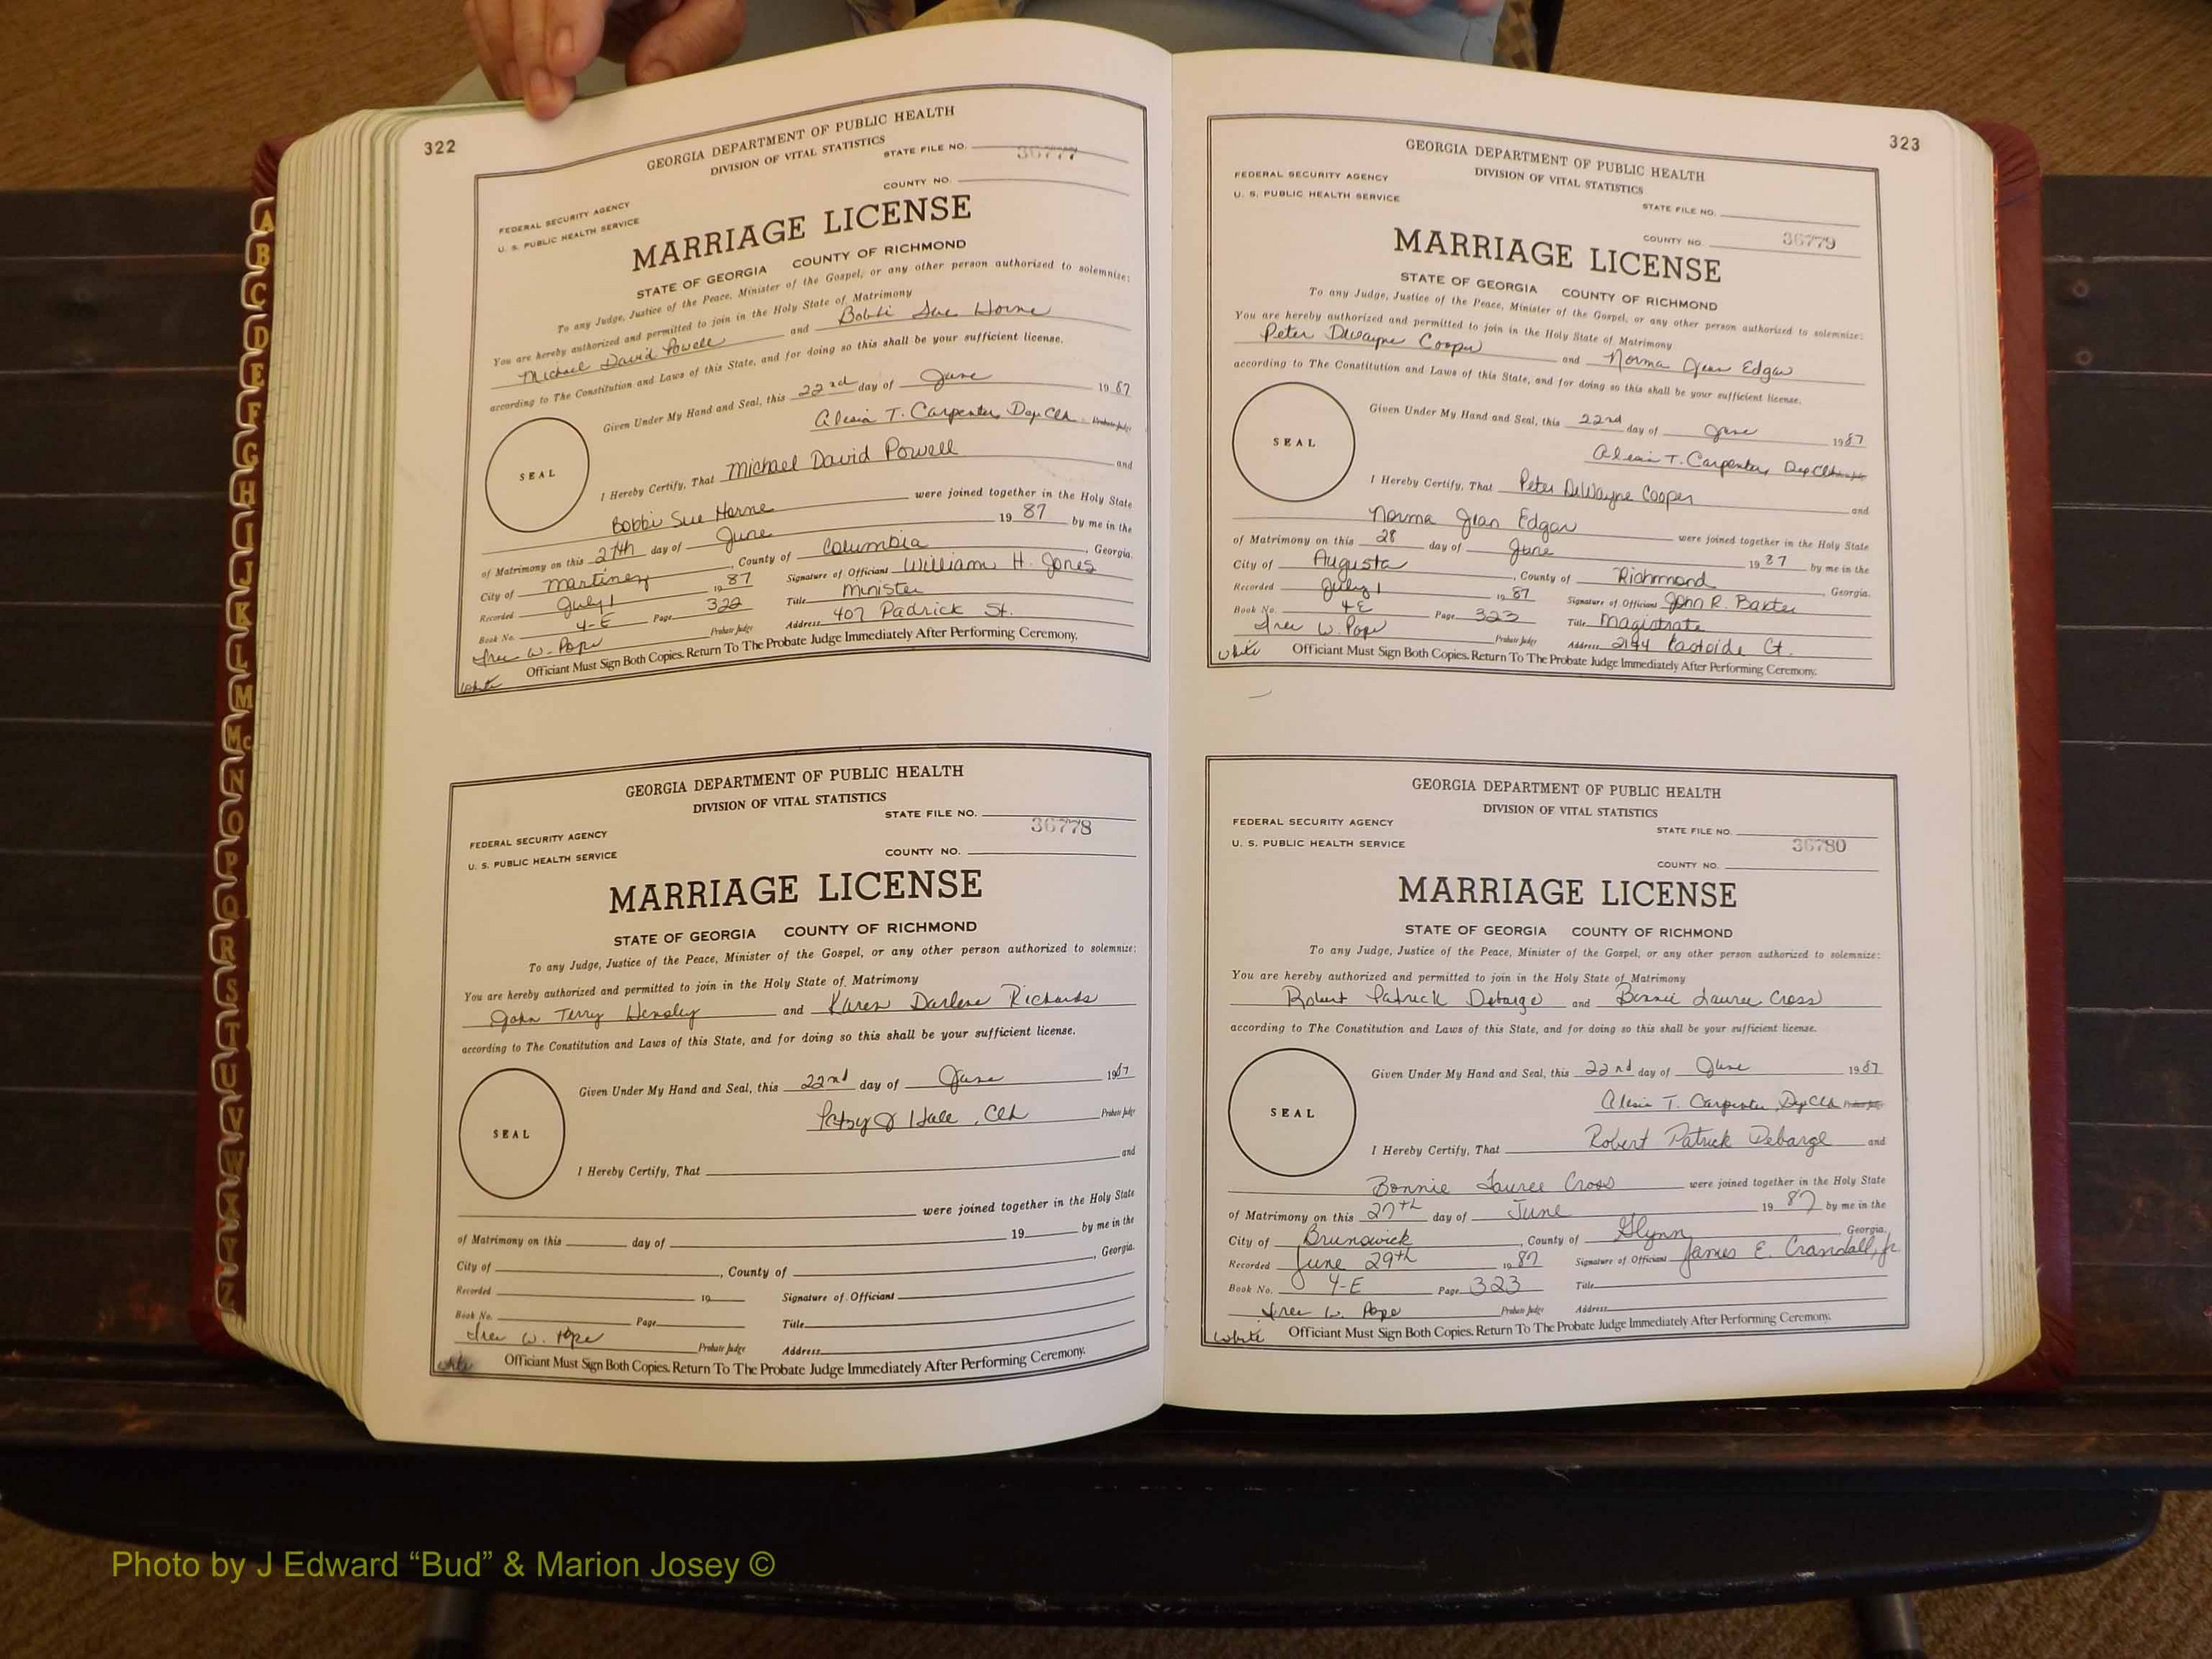 322
GEORGIA DEPARTMENT OF PUBLIC HEALTH
DIVISION OF VITAL STATISTICS
STATE FILE NO. 36777
FEDERAL SECURITY AGENCY
COUNTY NO.
U. S. PUBLIC HEALTH SERVICE
MARRIAGE LICENSE
STATE OF GEORGIA COUNTY OF RICHMOND
To any Judge, Justice of the Peace, Minister of the Gospel, or any other person authorized to solemnize:
You are hereby authorized and permitted to join in the Holy State of Matrimony
Michael David Powell and Bobbi Sue Horne
according to The Constitution and Laws of this State, and for doing so this shall be your sufficient license.
Given Under My Hand and Seal, this 22nd day of June 1987
Alesia T. Carpenter, Dep Clk. Probate Judge
SEAL
I Hereby Certify, That Michael David Powell and
Bobbi Sue Horne were joined together in the Holy State
of Matrimony on this 27th day of June 19 87 by me in the
City of Martinez, County of Columbia, Georgia.
Recorded July 1 19 87 Signature of Officiant William H. Jones
Book No. 4-E Page 322 Title Minister
Tree W. Pope Probate Judge Address 407 Padrick St.
Officiant Must Sign Both Copies. Return To The Probate Judge Immediately After Performing Ceremony.
White
GEORGIA DEPARTMENT OF PUBLIC HEALTH
DIVISION OF VITAL STATISTICS
STATE FILE NO.
36778
FEDERAL SECURITY AGENCY
U. S. PUBLIC HEALTH SERVICE
COUNTY NO.
MARRIAGE LICENSE
STATE OF GEORGIA COUNTY OF RICHMOND
To any Judge, Justice of the Peace, Minister of the Gospel, or any other person authorized to solemnize:
You are hereby authorized and permitted to join in the Holy State of Matrimony
John Terry Hensley and Karen Darlene Richards
according to The Constitution and Laws of this State, and for doing so this shall be your sufficient license.
Given Under My Hand and Seal, this 22nd day of June 1987
Patsy J Hale, Clk Probate Judge
SEAL
I Hereby Certify, That and
were joined together in the Holy State
of Matrimony on this day of 19 by me in the
City of , County of , Georgia.
Recorded 19 Signature of Officiant
Book No. Page Title
Tree W. Pope Probate Judge Address
Officiant Must Sign Both Copies. Return To The Probate Judge Immediately After Performing Ceremony.
white
323
GEORGIA DEPARTMENT OF PUBLIC HEALTH
DIVISION OF VITAL STATISTICS
FEDERAL SECURITY AGENCY
U. S. PUBLIC HEALTH SERVICE
STATE FILE NO.
COUNTY NO. 36779
MARRIAGE LICENSE
STATE OF GEORGIA COUNTY OF RICHMOND
To any Judge, Justice of the Peace, Minister of the Gospel, or any other person authorized to solemnize:
You are hereby authorized and permitted to join in the Holy State of Matrimony
Peter DeWayne Cooper and Norma Jean Edgar
according to The Constitution and Laws of this State, and for doing so this shall be your sufficient license.
Given Under My Hand and Seal, this 22nd day of June 1987
Alesia T. Carpenter, Dep Clk
SEAL
I Hereby Certify, That Peter DeWayne Cooper and
Norma Jean Edgar were joined together in the Holy State
of Matrimony on this 28 day of June 19 87 by me in the
City of Augusta, County of Richmond, Georgia.
Recorded July 1 19 87 Signature of Officiant John R. Baxter
Book No. 4E Page 323 Title Magistrate
Tree W. Pope Probate Judge Address 2144 Eastside Ct.
white Officiant Must Sign Both Copies. Return To The Probate Judge Immediately After Performing Ceremony.
GEORGIA DEPARTMENT OF PUBLIC HEALTH
DIVISION OF VITAL STATISTICS
FEDERAL SECURITY AGENCY
STATE FILE NO.
36780
U. S. PUBLIC HEALTH SERVICE
COUNTY NO.
MARRIAGE LICENSE
STATE OF GEORGIA COUNTY OF RICHMOND
To any Judge, Justice of the Peace, Minister of the Gospel, or any other person authorized to solemnize:
You are hereby authorized and permitted to join in the Holy State of Matrimony
Robert Patrick Debarge and Bonnie Lauree Cross
according to The Constitution and Laws of this State, and for doing so this shall be your sufficient license.
Given Under My Hand and Seal, this 22nd day of June 1987
Alesia T. Carpenter, Dep Clk
SEAL
I Hereby Certify, That Robert Patrick Debarge and
Bonnie Lauree Cross were joined together in the Holy State
of Matrimony on this 27th day of June 19 87 by me in the
City of Brunswick, County of Glynn, Georgia.
Recorded June 29th 19 87 Signature of Officiant James E. Crandall, Jr.
Book No. 4-E Page 323 Title
Tree W. Pope Probate Judge Address
white Officiant Must Sign Both Copies. Return To The Probate Judge Immediately After Performing Ceremony.
A
B
C
D
E
F
G
H
I
J
K
L
M
Mc
N
O
P
Q
R
S
T
U
V
W
X
Y
Z
Photo by J Edward “Bud” & Marion Josey ©